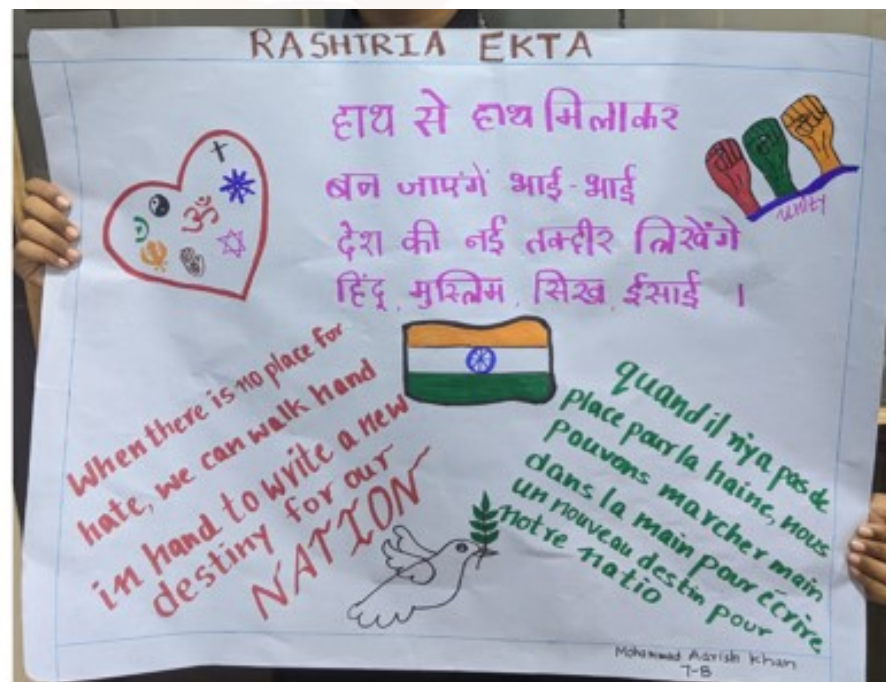 RASHTRIA EKTA
हाथ से हाथ मिलाकर
बन जाएंगें भाई-भाई
देश की नई तक्दीर लिखेंगे
हिंदू, मुस्लिम, सिख, ईसाई ।
unity
When there is no place for
hate, we can walk hand
in hand to write a new
destiny for our
NATION
quand il n'ya pas de
place pour la haine, nous
pouvons marcher main
dans la main pour écrire
un nouveau destin pour
notre natio
Mohammad Aarish Khan
7-B